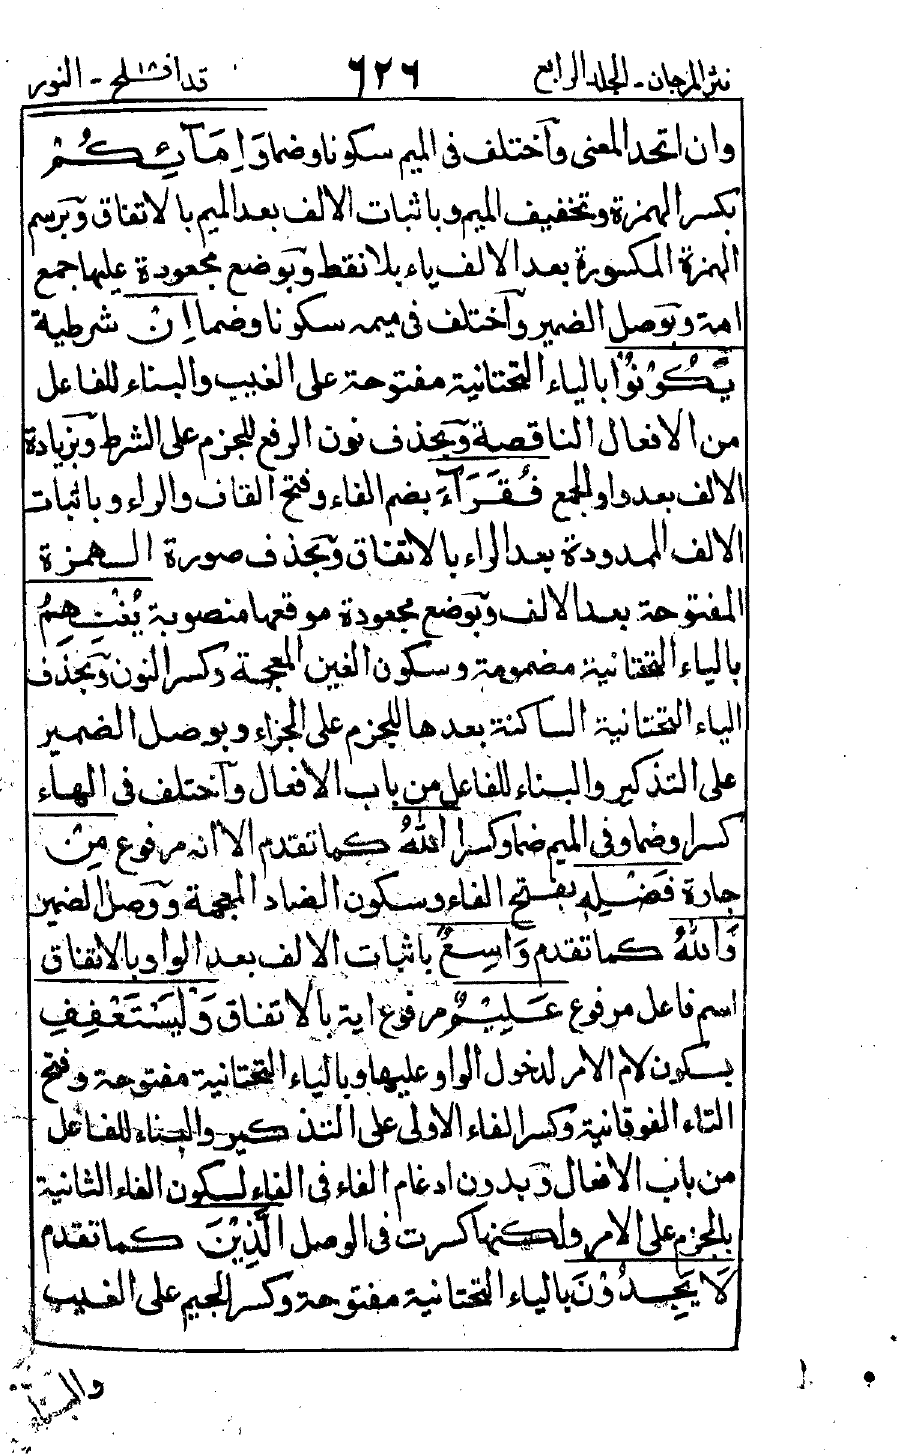 نثر المرجان - الجلد الرابع ٦٢٦ قد افلح ١٨ - النور
وان اتحد المعنى وآختلف فى الميم سكونا وضما وَاِمَآئِكُمْ
بكسر الهمزة وتخفيف الميم وباثبات الالف بعد الميم بالاتفاق وبرسم
الهمزة المكسورة بعد الالف ياء بلا نقط وبوضع مجعودة عليها جمع
امة وبوصل الضمير وآختلف فى ميمه سكونا وضما اِنْ شرطية
يَّكُوْنُوْا بالياء التحتانية مفتوحة على الغيب والبناء للفاعل
من الافعال الناقصة وبحذف نون الرفع للجزم على الشرط وبزيادة
الالف بعد واو الجمع فُقَرَآءَ بضم الفاء وفتح القاف والراء وباثبات
الالف الممدودة بعد الراء بالاتفاق وبحذف صورة الهمزة
المفتوحة بعد الالف وبوضع مجعودة موقعها منصوبة يُغْنِهِمُ
بالياء التحتانية مضمومة وسكون الغين المعجمة وكسر النون وبحذف
الياء التحتانية الساكنة بعدها للجزم على الجزاء وبوصل الضمير
على التذكير والبناء للفاعل من باب الافعال وآختلف فى الهاء
كسرا وضما وفى الميم ضما وكسرا اللّٰهُ كما تقدم الا انه مرفوع مِنْ
جارة فَضْلِهٖ بفتح الفاء وسكون الضاد المعجمة ووصل الضمير
وَاللّٰهُ كما تقدم وَاسِعٌ باثبات الالف بعد الواو بالاتفاق
اسم فاعل مرفوع عَلِيْمٌ مرفوع اية بالاتفاق وَلْيَسْتَعْفِفِ
بسكون لام الامر لدخول الواو عليها وبالياء التحتانية مفتوحة وفتح
التاء الفوقانية وكسر الفاء الاولى على التذكير والبناء للفاعل
من باب الافعال وبدون ادغام الفاء فى الفاء لسكون الفاء الثانية
بالجزم على الامر ولكنها كسرت فى الوصل الَّذِيْنَ كما تقدم
لَا يَجِدُوْنَ بالياء التحتانية مفتوحة وكسر الجيم على الغيب
والبناء